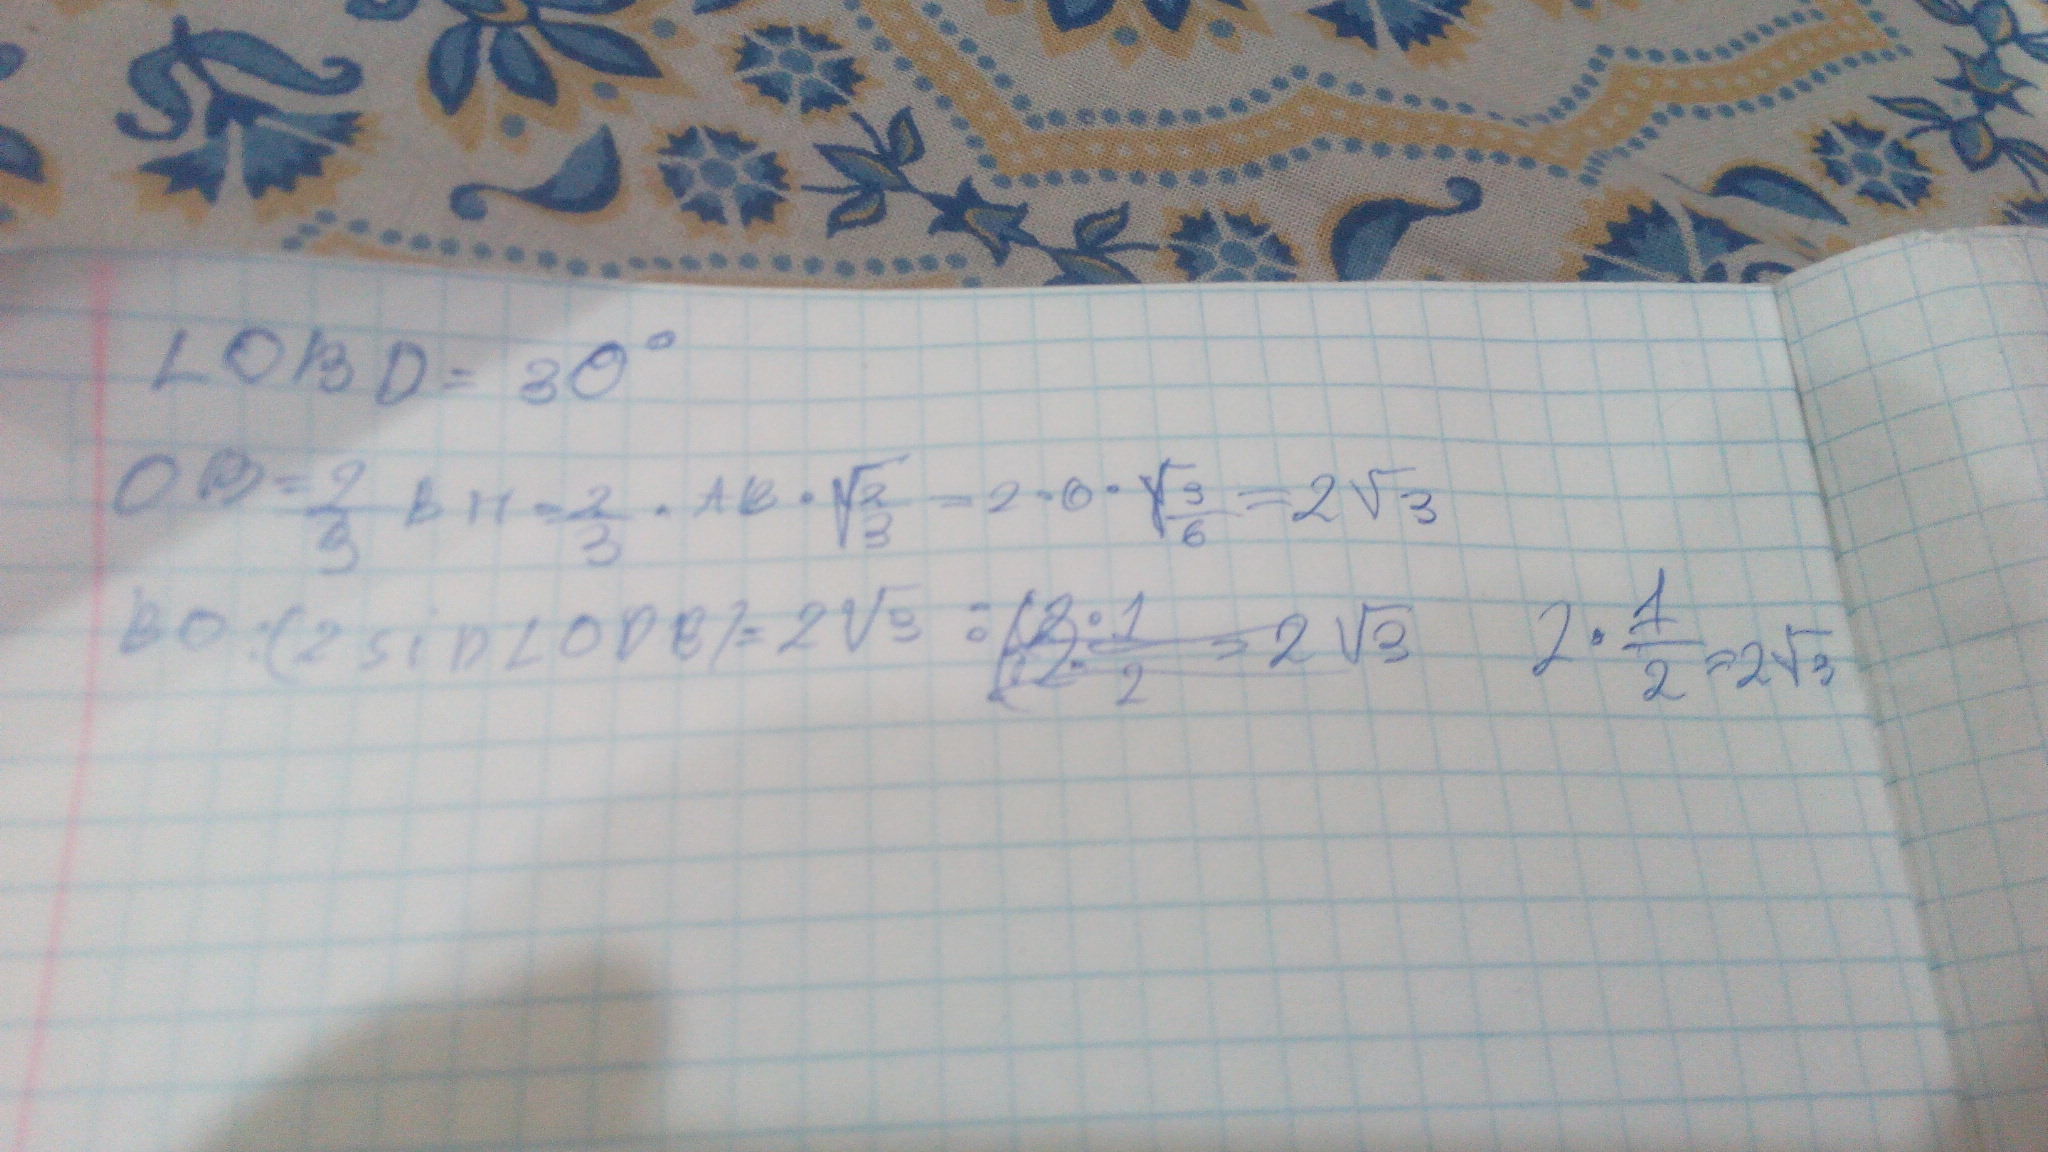 ∠OBD = 30°
OB = 2/3 BH = 2/3 · AB · √2/3 = 2 · 6 · √3/6 = 2√3
BO : (2 sin ∠ODB) = 2√3 : 2√3 2 · 1/2 = 2√3